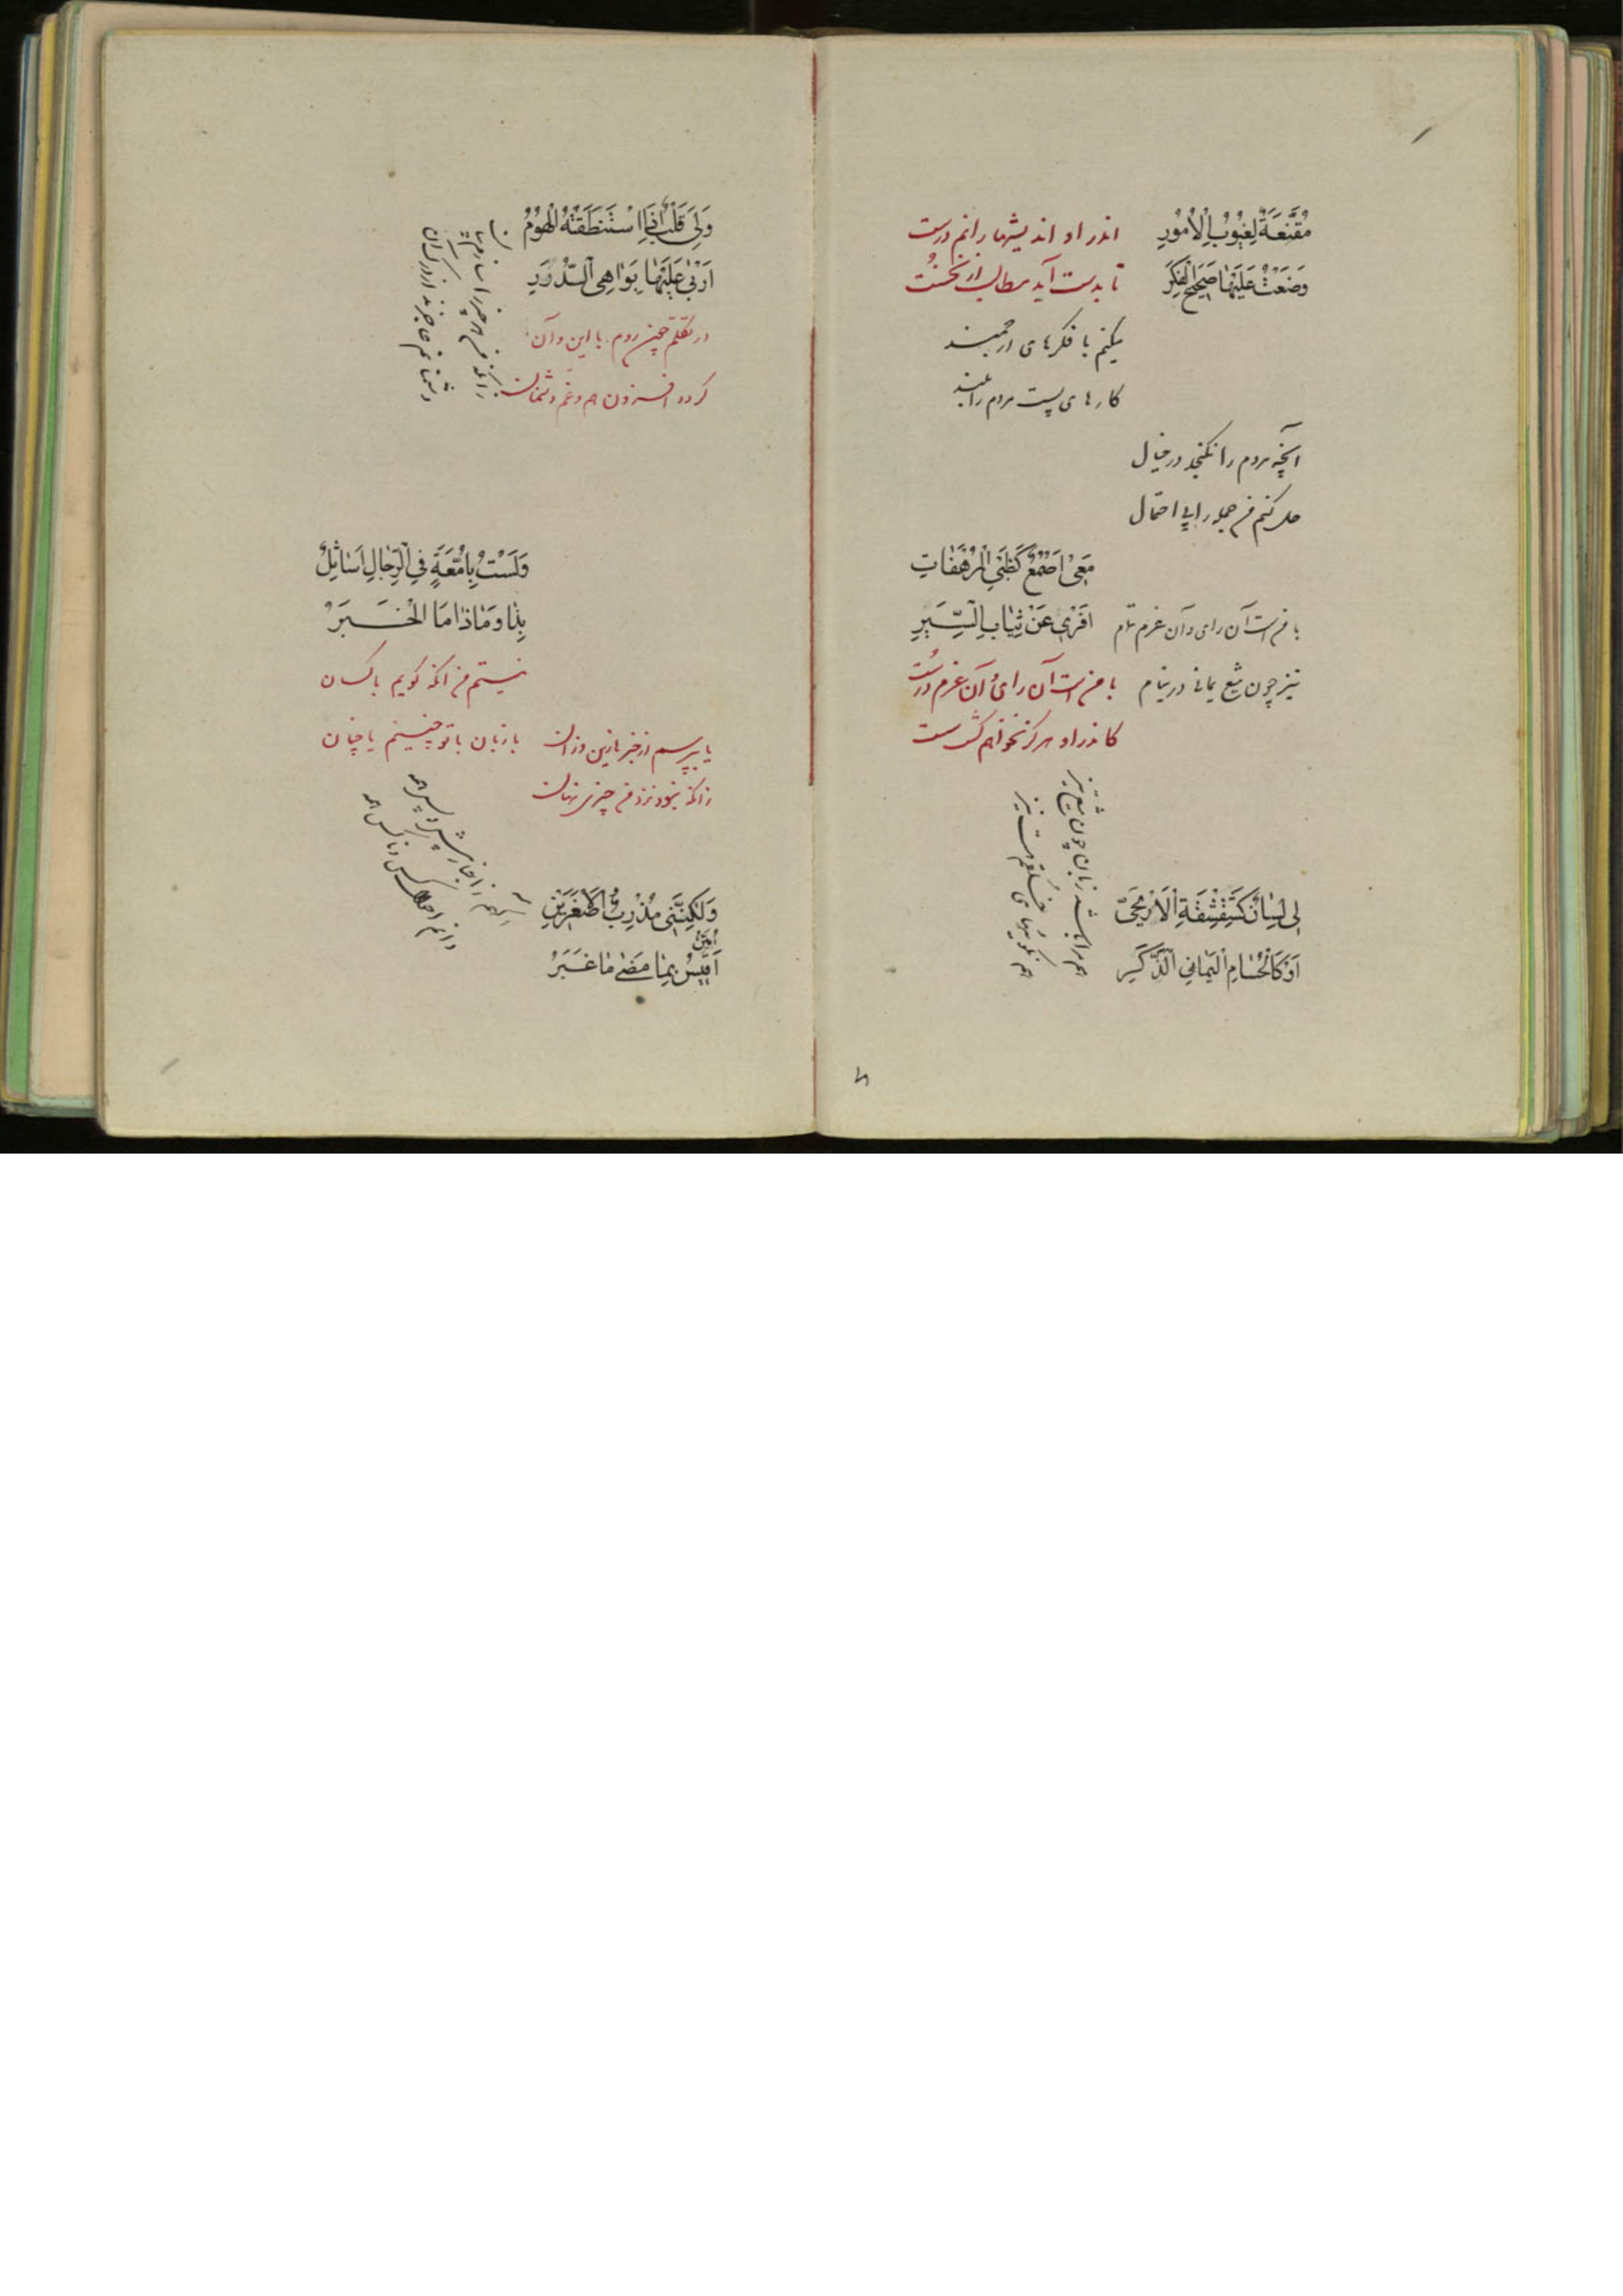 مُقَنَّعَةٌ لِغُيُوبِ الْأُمُورِ
وَضَعْتُ عَلَيْهَا صَحِيحَ الْفِكَرِ
اندر او اندیشها رانم درست
تا بدست آید مطالب از نخست
میکنم با فکرهای ارجمند
کارهای پست مردم را بلند
آنچه مردم را نگنجد در خیال
حل کنم من جمله را بی احتمال
مَعِی اَصْمَعٌ كَظُبَی الْمُرْهَفَاتِ
اَفْرِی عَنْ ثِيَابِ السِّيَرِ
با من است آن رای و آن عزم تمام
تیز چون تیغ یمانی در نیام
با من است آن رای و آن عزم درست
کاندر او هرگز نخواهم گشت سست
لِی لِسَانٌ كَشِقْشِقَةِ الْاَرْحَبِیّ
اَوْ كَالْحُسَامِ الْيَمَانِی الذَّكَرِ
هم مرا باشد زبان چون تیغ تیز
هم نکوئیهای خلقم هست نیز
وَلِی قَلْبٌ اِذَا اسْتَنْطَقَتْهُ الْهُمُومُ
اَرْبَی عَلَيْهَا بَوَاهِی الدُّرَرِ
در تکلم چون روم با این و آن
گردد افزون هم و غم دشمنان
زانکه من هر چیز را سازم بیان
دشمنانم عاجزند از درک آن
وَلَسْتُ بِاِمَّعَةٍ فِی الرِّجَالِ اُسَائِلُ
بِذَا وَمَاذَا مَا الْخَبَرْ
نیستم من آنکه گویم با کسان
با زبان با تو چنینم یا چنان
یا بپرسم از خبرها زین و زان
زانکه نبود نزد من چیزی نهان
وَلَكِنَّنِی مُذْرِبُ الْاَصْغَرَيْنِ
اُبَيِّنُ
اَقِيسُ بِمَا مَضَی مَا غَبَرْ